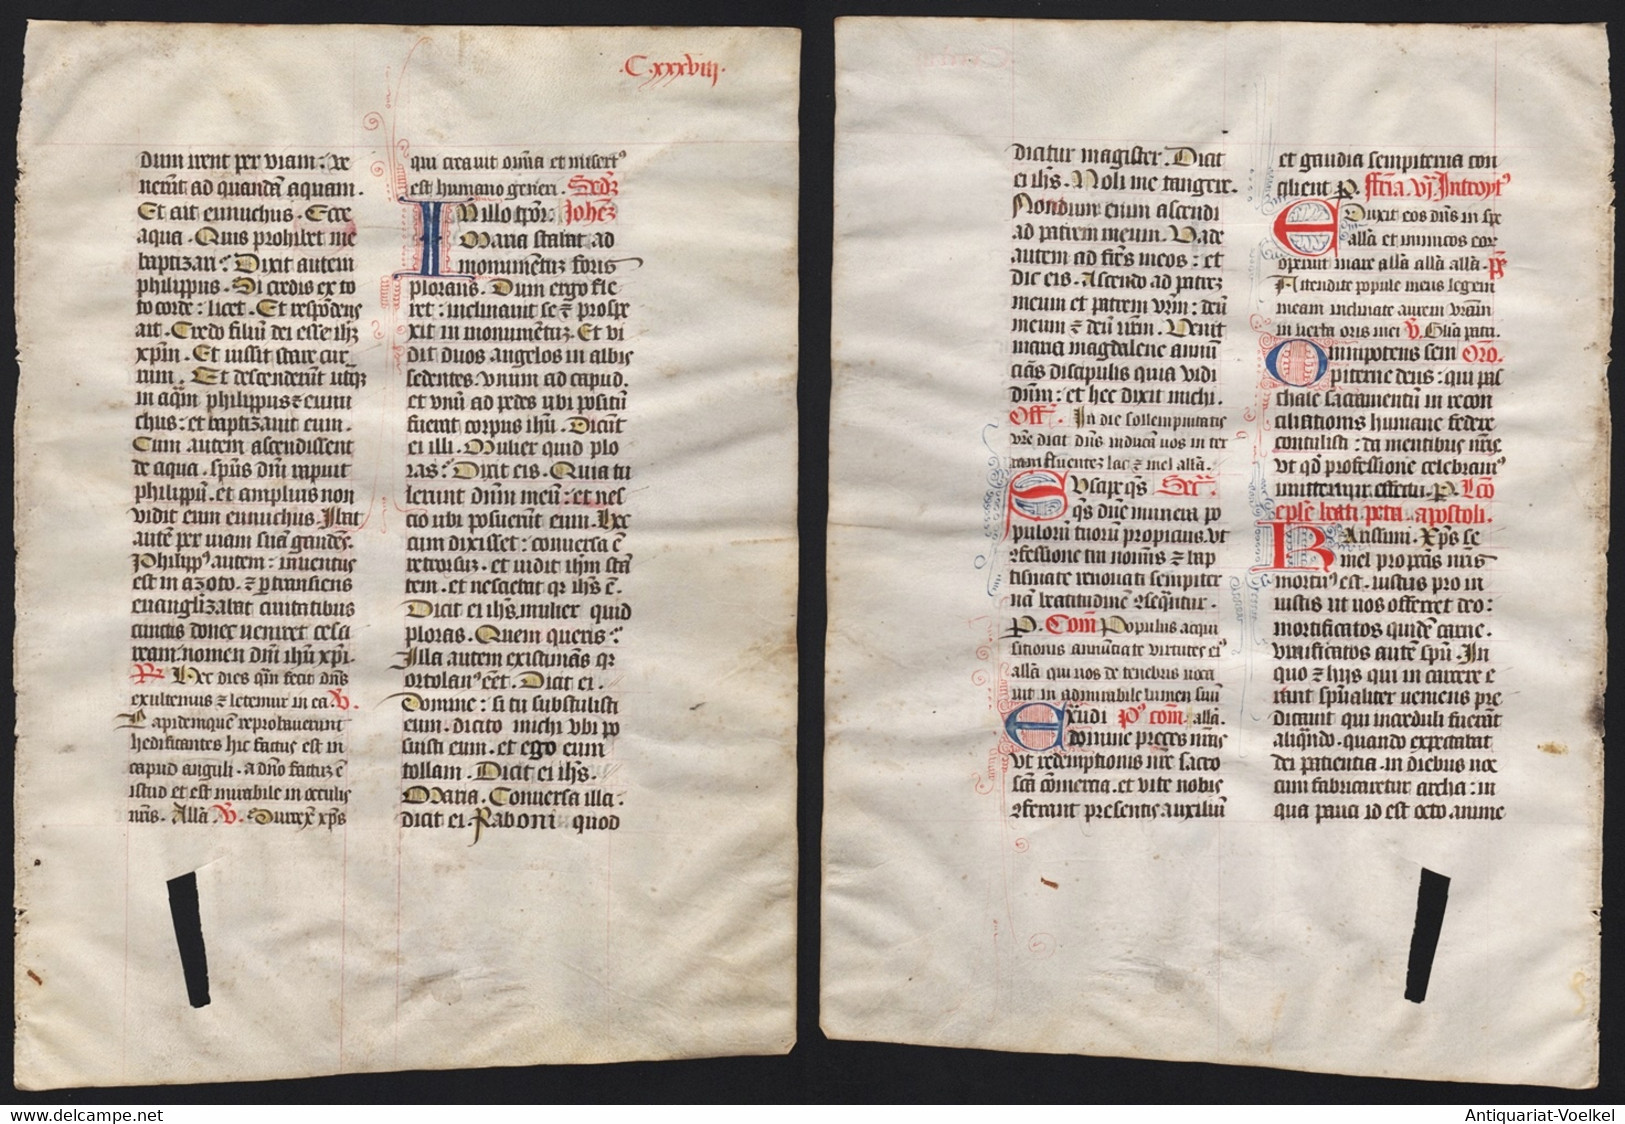 ·C·xxxviij·
dum irent per viam: ve
nerūt ad quandā aquam.
Et ait eunuchus. Ecce
aqua. Quis prohibet me
baptizari: Dixit autem
philippus. Si credis ex to
to corde: licet. Et respōdens
ait. Credo filiū dei esse ihm̄
xp̄m. Et iussit stare cur
rum. Et descenderūt utq3
in aquā philippus ⁊ eunu
chus: et baptizauit eum.
Cum autem ascendissent
de aqua. spūs dn̄i rapuit
philippū. et amplius non
vidit eum eunuchus. Ibat
autē per uiam suā gaudēs.
Philippꝰ autem: inuentus
est in azoto. ⁊ ꝑtransiens
euangelizabat ciuitatibus
cunctis donec ueniret cesa
ream. nomen dn̄i ihū xp̄i.
R Hec dies quā fecit dn̄s
exultemus ⁊ letemur in ea. V.
Lapidem quē reprobauerunt
hedificantes hic factus est in
caput anguli. a dn̄o factū ē
istud et est mirabile in oculis
nr̄is. Allā. V. Surrex̄ xp̄s
qui creauit om̄ia et misertꝰ
est humano generi. Sedz
IN illo tp̄r. Johēz
Maria stabat ad
monumētuz foris
plorans. Dum ergo fle
ret: inclinauit se ⁊ prospe
xit in monumētuz. Et vi
dit duos angelos in albis
sedentes. vnum ad capud.
et vnū ad pedes vbi positū
fuerat corpus ihū. Dicūt
ei illi. Mulier quid plo
ras: Dixit eis. Quia tu
lerunt dn̄m meū: et nes
cio ubi posuerūt eum. Hec
cum dixisset: conuersa ē
retrorsuz. et uidit ihm̄ stā
tem. et nesciebat qr ihs̄ ē.
Dicit ei ihs̄. mulier quid
ploras. Quem queris:
Illa autem existimās qr
ortolanꝰ eēt. Dicit ei.
Domine: si tu substulisti
eum. dicito michi vbi po
suisti eum. et ego eum
tollam. Dicit ei ihs̄.
Maria. Conuersa illa.
dicit ei. Raboni quod
dicitur magister. Dicit
ei ihs̄. Noli me tangere.
Nondum enim ascendi
ad patrem meum. Vade
autem ad frēs meos: et
dic eis. Ascendo ad patrez
meum et patrem vr̄m: deū
meum ⁊ deū vr̄m. Venit
maria magdalene annū
cians discipulis quia vidi
dn̄m: et hec dixit michi.
Off. In die sollempnitatis
vr̄e dicit dn̄s inducā uos in ter
ram fluentez lac ⁊ mel allā.
SUscipe qs̄ Secr̄.
qs̄ dn̄e munera po
pulorū tuorū propicius. vt
ꝯfessione tui nom̄is ⁊ bap
tismate renouati sempiter
nā beatitudinē ꝯsequātur.
P. Com̄ Populus acqui
sitionis annūciate virtutes eiꝰ
allā qui uos de tenebris uoca
uit in admirabile lumen suū
EXudi P° com̄. allā.
domine preces nr̄as
vt redemptionis nr̄e sacro
sc̄ā cōmercia. et vite nobis
ꝯferant presentis auxiliū
et gaudia sempiterna con
cilient P. ffēria. vj. Introytꝰ
EDuxit eos dn̄s in spe
allā et inimicos eor
operuit mare allā allā allā. ps̄
Attendite popule meus legem
meam inclinate aurem vr̄am
in uerba oris mei V. Glīa patri.
OMnipotens sem Orō.
piterne deus: qui pas
chale sacramentū in recon
ciliationis humane federe
contulisti: da mentibus nr̄is
vt qd̄ professione celebramꝰ
imittemur effectu. P. Lcō
epl̄e beati petri apostoli.
KArissimi. Xp̄s se
mel pro pc̄c̄is nr̄is
mortuꝰ est. iustus pro in
iustis ut nos offerret deo:
mortificatos quidē carne.
viuificatos autē spū. In
quo ⁊ hijs qui in carcere e
rant spūaliter ueniens pre
dicauit qui increduli fuerāt
aliqn̄do. quando expectabāt
dei patientia. in diebus noe
cum fabricaretur archa: in
qua pauci id est octo anime
Antiquariat-Voelkel
delcampe.net